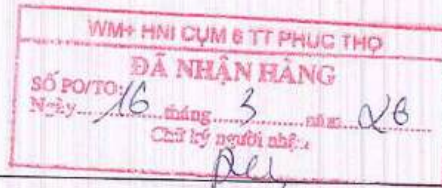 WM+ HNI CỤM 6 TT PHUC THỌ
ĐÃ NHẬN HÀNG
SỐ PO/TO:
Ngày 16 tháng 3 năm 26
Chữ ký người nhận